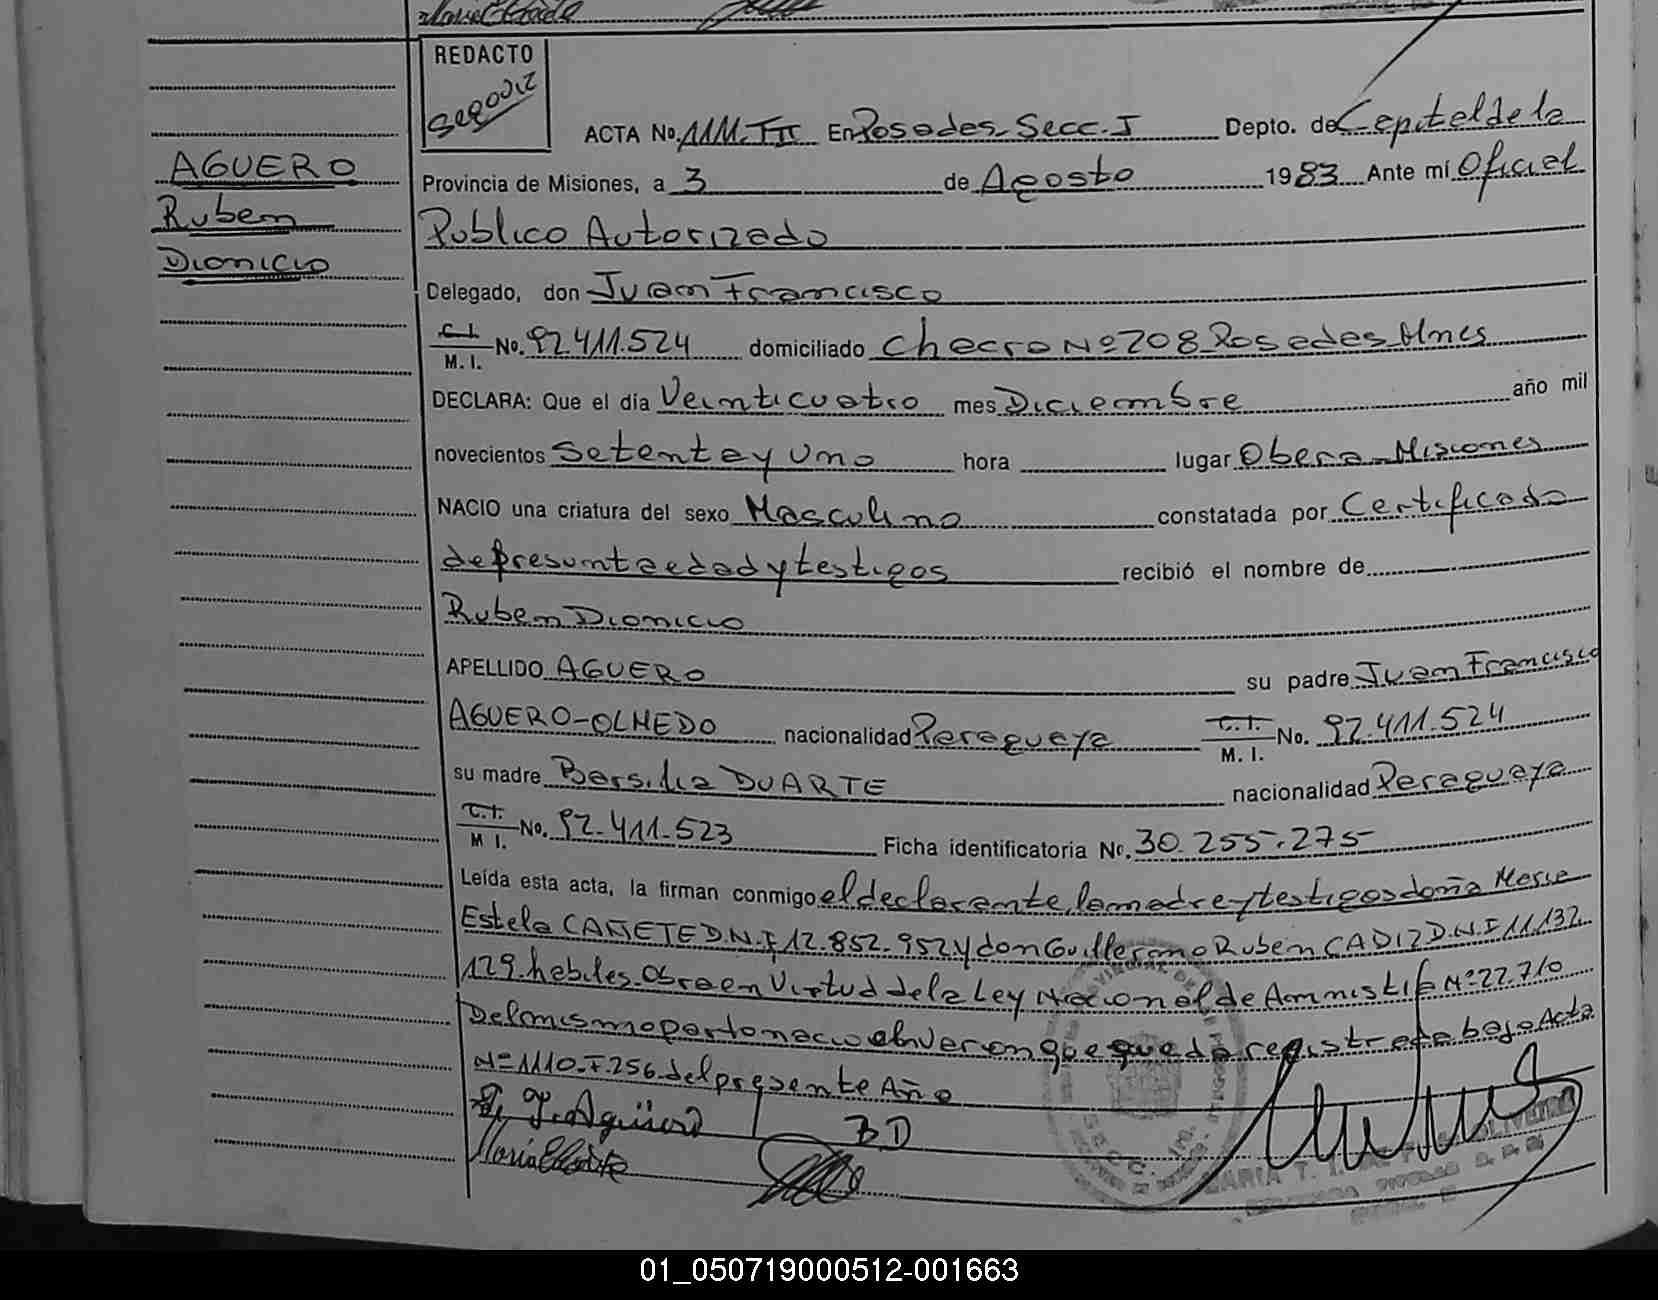 REDACTO
AGUERO
Ruben
Dionicio
ACTA No. 1111. T II En Posadas - Secc. I Depto. de Capital de la
Provincia de Misiones, a 3 de Agosto 1983 Ante mí Oficial
Publico Autorizado
Delegado, don Juan Francisco
C. I.
M. I. No. 92.411.524 domiciliado Chacra Nº 208 Posadas Mnes
DECLARA: Que el día Veinticuatro mes Diciembre año mil
novecientos Setenta y Uno hora lugar Obera - Misiones
NACIO una criatura del sexo Masculino constatada por Certificado
de presunta edad y testigos recibió el nombre de
Ruben Dionicio
APELLIDO AGUERO su padre Juan Francisco
AGUERO-OLMEDO nacionalidad Paraguaya C. I.
M. I. No. 92.411.524
su madre Bersilia DUARTE nacionalidad Paraguaya
C. I.
M I. No. 92-411-523 Ficha identificatoria No. 30.255.275
Leída esta acta, la firman conmigo el declarante, la madre y testigos doña Maria
Estela CAÑETE D.N.I 12.852.952 y don Guillermo Ruben CADIZ D.N.I 11.132.
129. habiles. Obra en Virtud de la Ley Nacional de Amnistia Nº 22.710
Del mismo parto nacio el Averon que queda registrada bajo Acta
Nº 1110. T. 256. del presente Año
BD
01_050719000512-001663